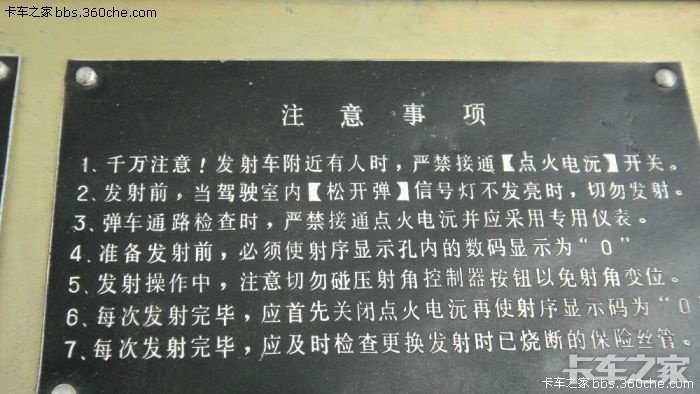 卡车之家 bbs.360che.com
注意事项
1、千万注意！发射车附近有人时，严禁接通【点火电沅】开关。
2、发射前，当驾驶室内【松开弹】信号灯不发亮时，切勿发射。
3、弹车通路检查时，严禁接通点火电沅并应采用专用仪表。
4、准备发射前，必须使射序显示孔内的数码显示为“0”
5、发射操作中，注意切勿碰压射角控制器按钮以免射角变位。
6、每次发射完毕，应首先关闭点火电沅再使射序显示码为“0
7、每次发射完毕，应及时检查更换发射时已烧断的保险丝管。
卡车之家
卡车之家 bbs.360che.com